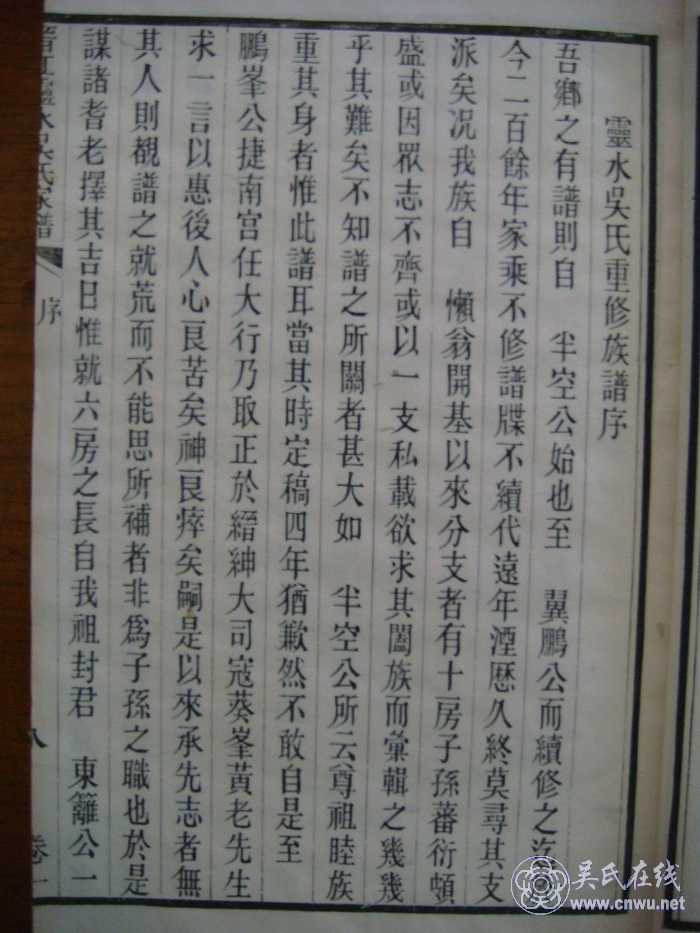 靈水吳氏重修族譜序
吾鄉之有譜則自 半空公始也至 翼鵬公而續修之迄
今二百餘年家乘不修譜牒不續代遠年湮歷久終莫尋其支
派矣况我族自 懶翁開基以來分支者有十房子孫蕃衍頓
盛或因眾志不齊或以一支私載欲求其闔族而彙輯之幾幾
乎其難矣不知譜之所關者甚大如 半空公所云尊祖睦族
重其身者惟此譜耳當其時定稿四年猶歉然不敢自是至
鵬峯公捷南宮任大行乃取正於縉紳大司寇葵峯黃老先生
求一言以惠後人心良苦矣神良瘁矣嗣是以來承先志者無
其人則覩譜之就荒而不能思所補者非爲子孫之職也於是
謀諸耆老擇其吉日惟就六房之長自我祖封君 東籬公一
晋江靈水吳氏家譜 序 八 卷一
吴氏在线
www.cnwu.net